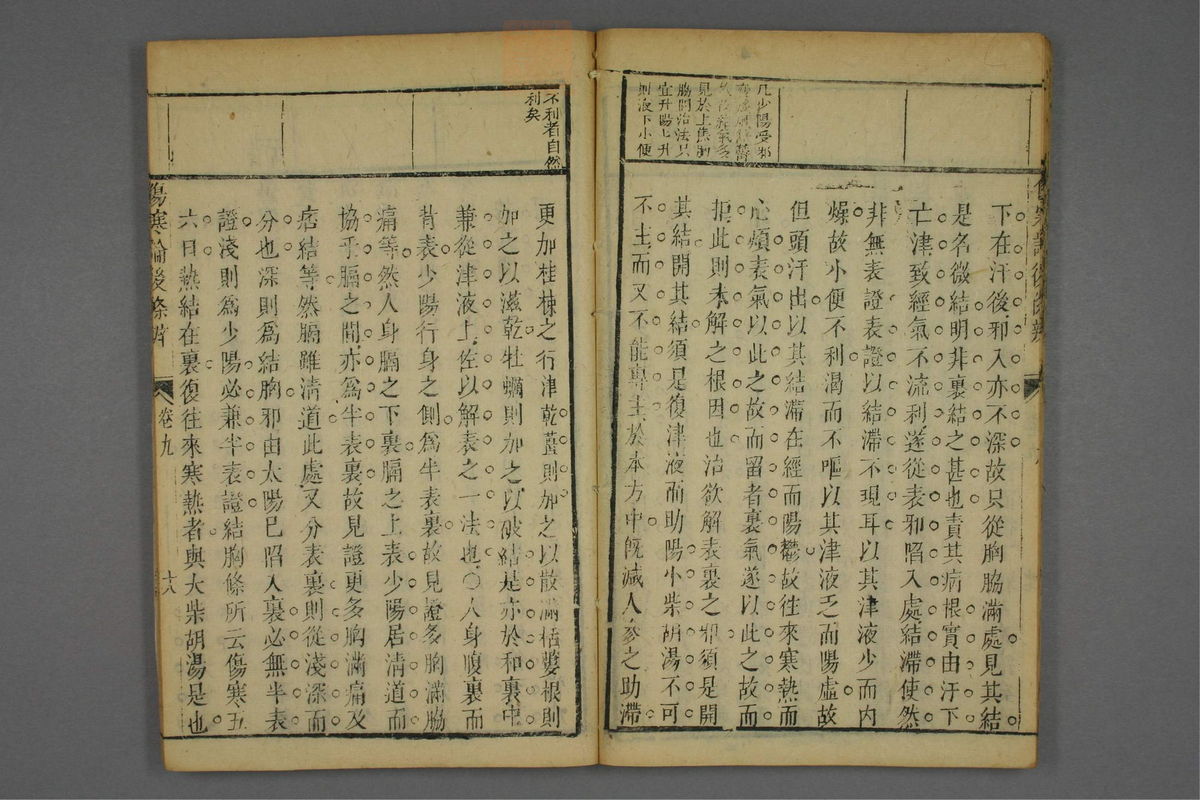 凡少陽受邪
見於上焦
脇間治法只
宜升陽上升
則液下小便
傷寒論後條辨
下在汗後邪入亦不深故只從胸脇滿處見其結
是名微結明非裏結之甚也責其病根實由汗下
亡津致經氣不流利遂從表邪陷入處結滯使然
非無表證表證以結滯不現耳以其津液少而內
燥故小便不利渴而不嘔以其津液乏而陽虛故
但頭汗出以其結滯在經而陽鬱故往來寒熱而
心煩表氣以此之故而留者裏氣遂以此之故而
拒此則未解之根因也治欲解表裏之邪須是開
其結開其結須是復津液而助陽小柴胡湯不可
不主而又不能專主於本方中旣減人參之助滯
不利者自然
利矣
更加桂枝之行津乾薑則加之以散滿栝蔞根則
加之以滋乾牡蠣則加之以破結是亦於和裏中
兼從津液上佐以解表之一法也○人身腹裏而
背表少陽行身之側爲半表裏故見證多胸滿脇
痛等然人身膈之下裏膈之上表少陽居清道而
協乎膈之間亦爲半表裏故見證更多胸滿痛及
痞結等然膈雖清道此處又分表裏則從淺深而
分也深則爲結胸邪由太陽已陷入裏必無半表
證淺則爲少陽必兼半表證結胸條所云傷寒五
六日熱結在裏復往來寒熱者與大柴胡湯是也
傷寒論後條辨
卷九
十八